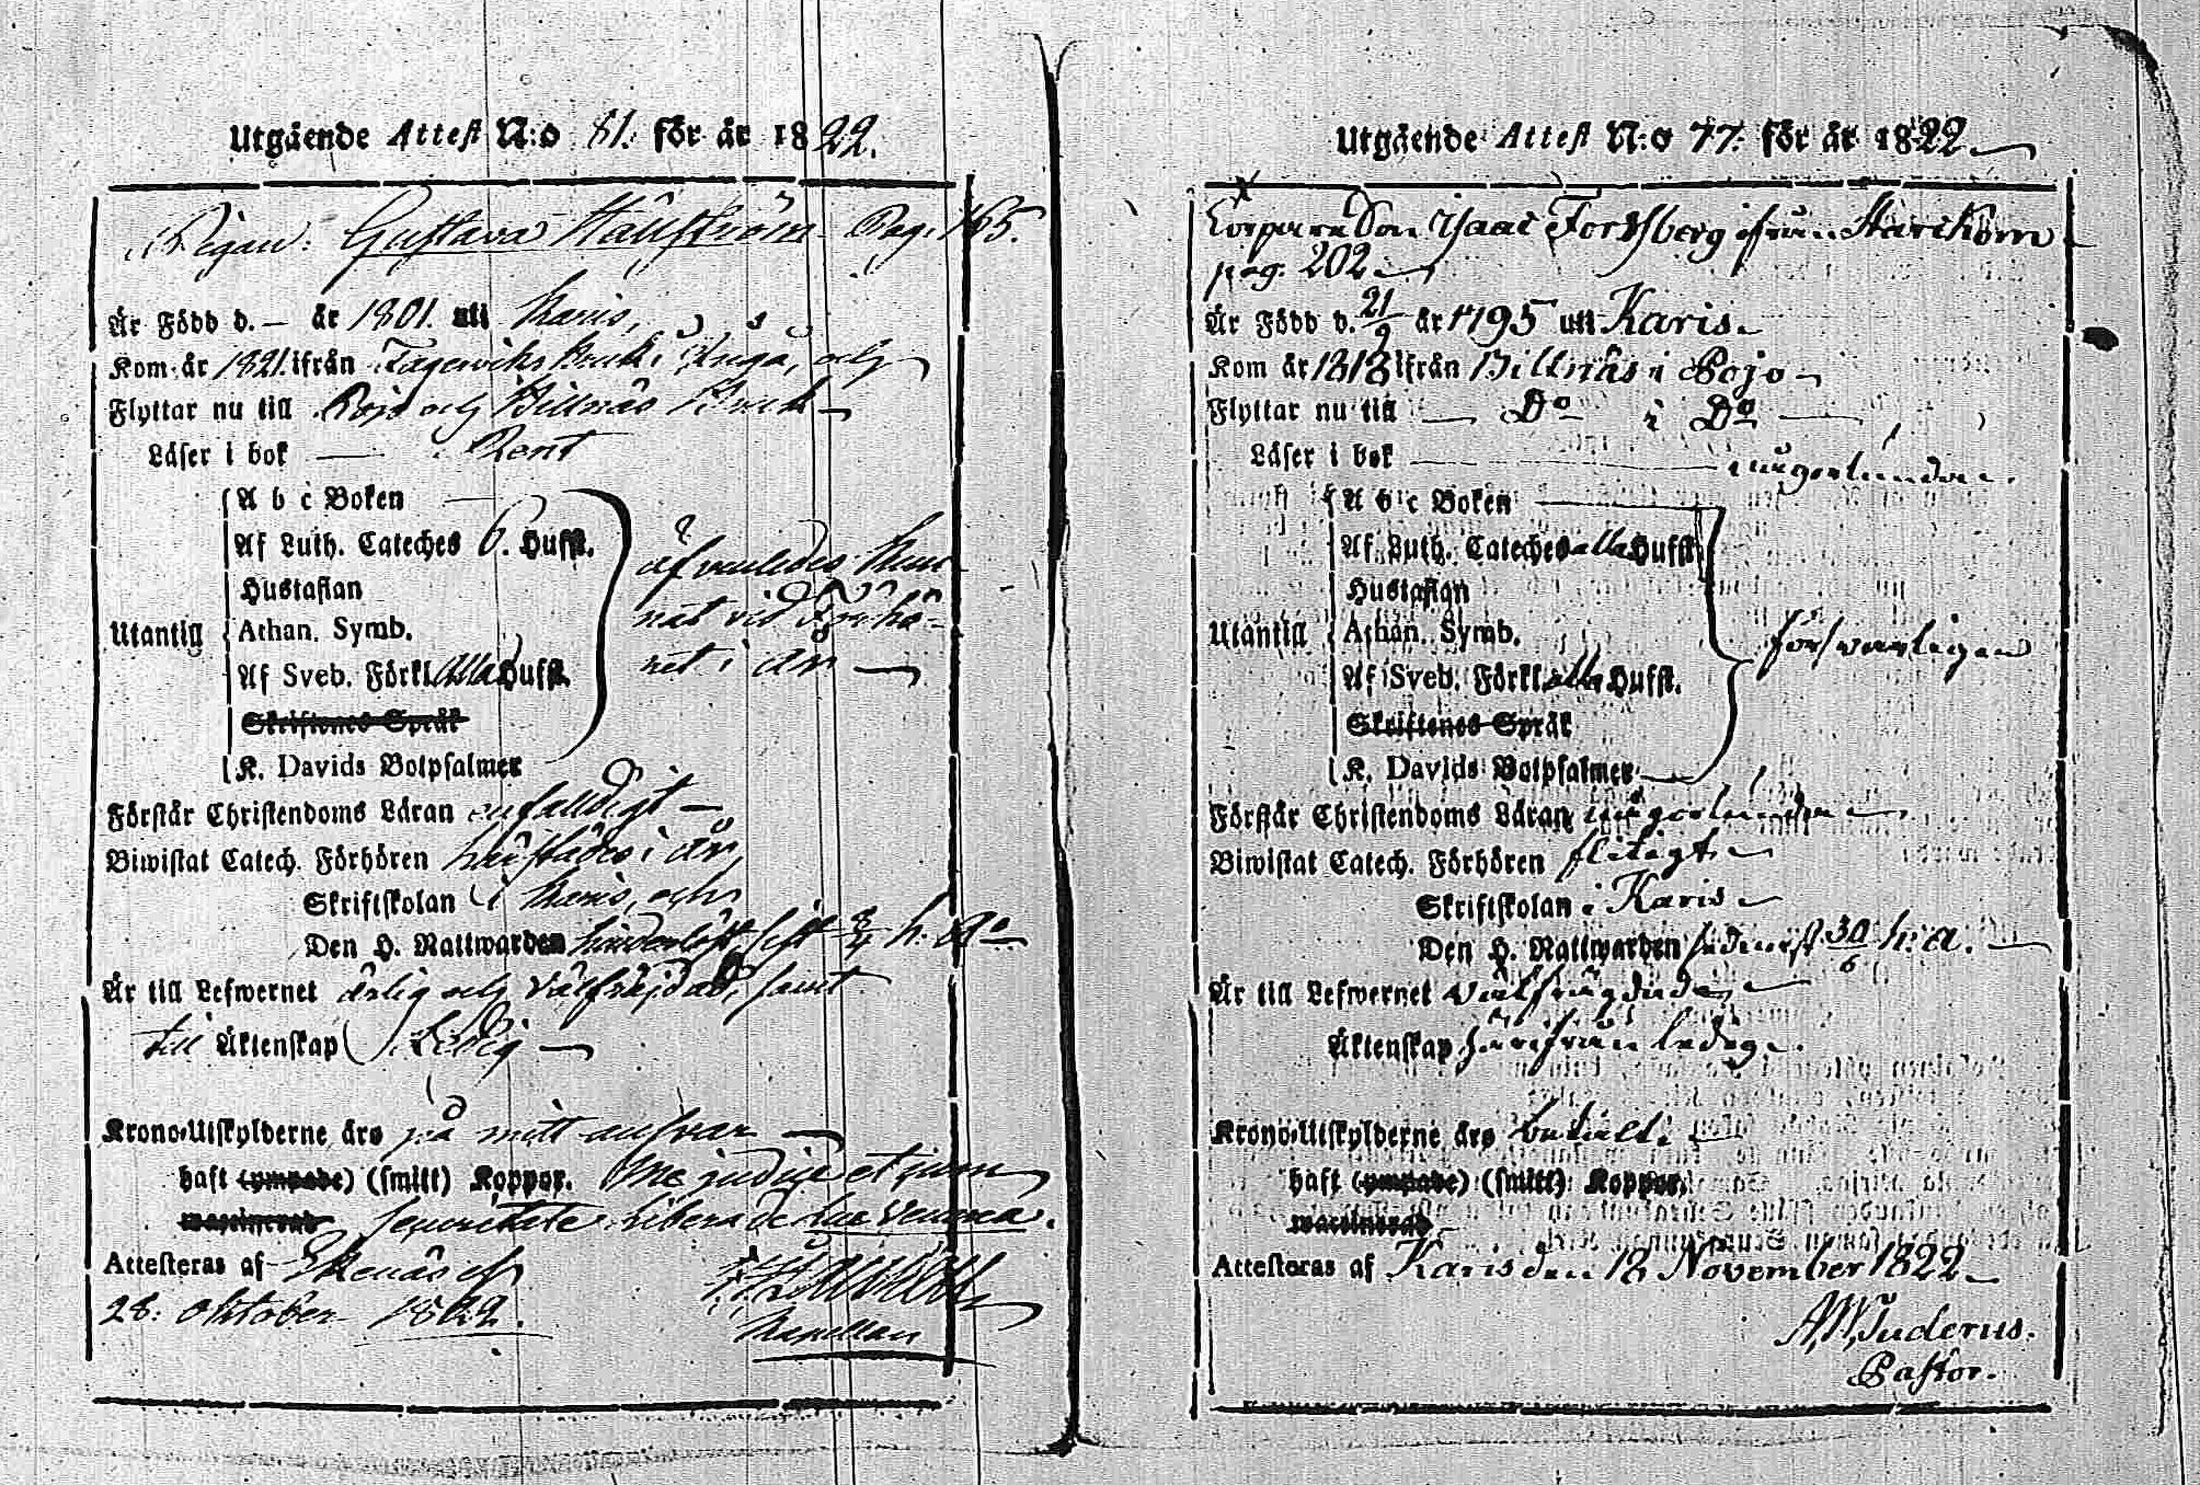 Utgående Attest N:o 81. för år 1822.
Pigan Gustava Pag. 165.
Är Född d. — år 1801. uti Karis,
Kom år 1821. ifrån Fagerviks Bruk i Ingå, och
Flyttar nu till Pojo och Billnäs Bruk —
Läser i bok — Rent
A b c Boken —
Af Luth. Cateches 6. Hufst.
Hustaflan
Utantill Athan. Symb.
Af Sveb. Förkl. Alla Hufst.
Skriftenes Språk
K. Davids Botpsalmer
vid Förhö-
ret i år —
Förstår Christendoms Läran enfaldigt —
Biwistat Catech. Förhören i år,
Skriftskolan i Karis, och
Den H. Nattwarden sist h. a:o
Är till Lefwernet ärlig och välfräjdad, samt
till Äktenskap Ledig —
Krono-Utskylderne äro på mitt ansvar —
haft (ympade) (smitt) Koppor. Me judice et jam
waccinerad libera
Attesteras af Ekenäs af
28. Oktober 1822.
Kapellan
Utgående Attest N:o 77. för år 1822.
Isaac Forssberg ifrån
pag. 202
Är Född d. 21/9 år 1795 uti Karis.
Kom år 1818 ifrån Billnäs i Pojo
Flyttar nu till — Do i Do —
Läser i bok — någorlunda.
A b c Boken
Af Luth. Cateches alla Hufst.
Hustaflan
Utantill Athan. Symb. försvarligen
Af Sveb. Förkl. alla Hufst.
Skriftenes Språk
K. Davids Botpsalmer
Förstår Christendoms Läran någorlunda
Biwistat Catech. Förhören flitigt.
Skriftskolan i Karis
Den H. Nattwarden sednast 30/6 h. a. —
Är till Lefwernet välfrägdad,
Äktenskap härifrån ledig.
Krono-Utskylderne äro betalte
haft (ympade) (smitt) Koppor.
waccinerad
Attesteras af Karis den 18 November 1822
Pastor.